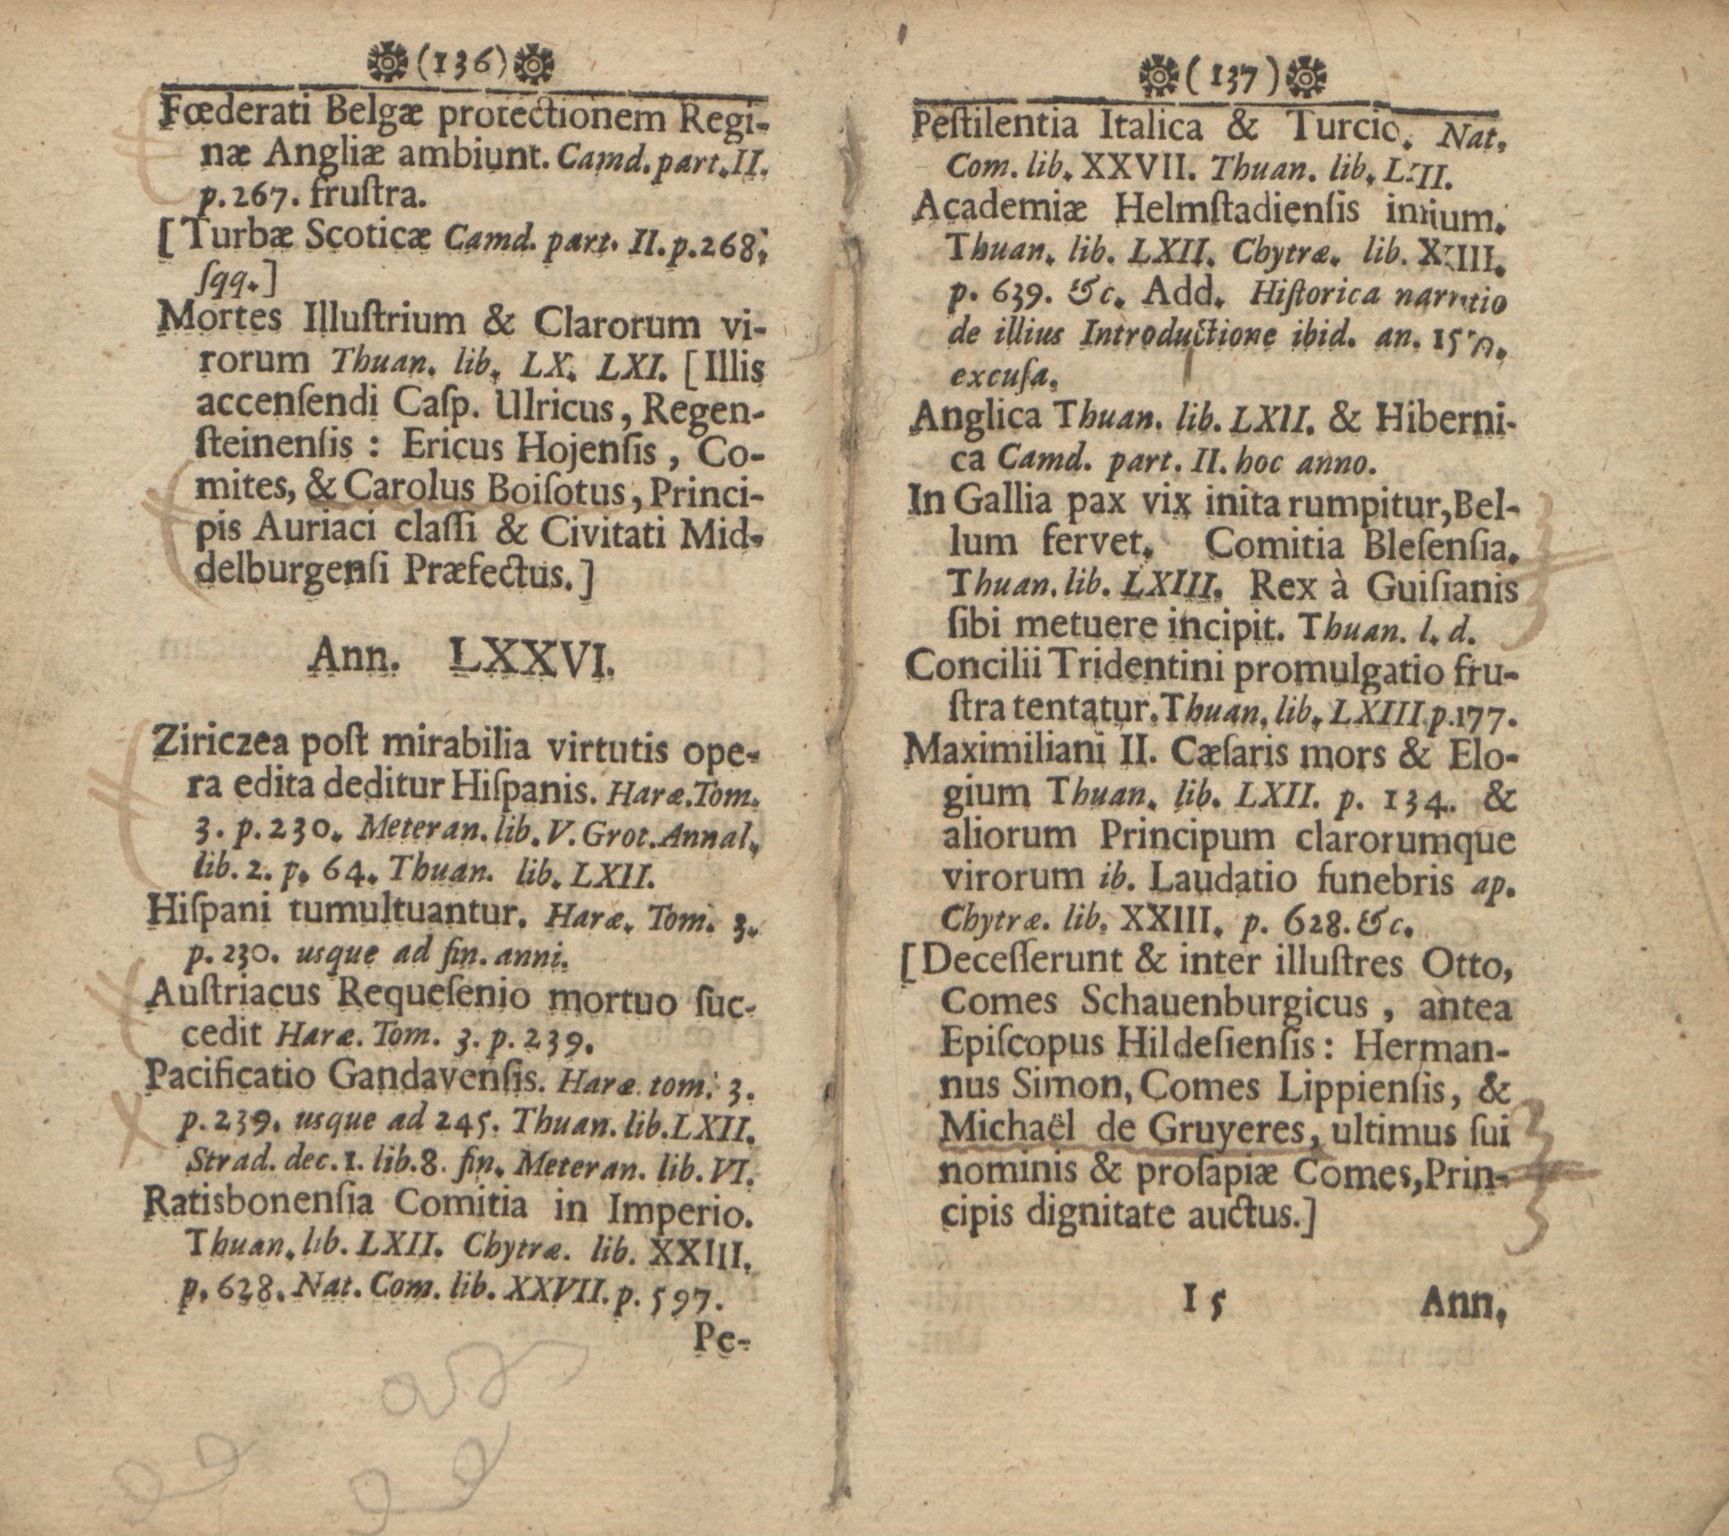 (136)
Fœderati Belgæ protectionem Regi-
næ Angliæ ambiunt. Camd. part. II.
p. 267. fruſtra.
[Turbæ Scoticæ Camd. part. II. p. 268.
ſqq.]
Mortes Illuſtrium & Clarorum vi-
rorum Thuan. lib. LX. LXI. [Illis
accenſendi Caſp. Ulricus, Regen-
ſteinenſis: Ericus Hojenſis, Co-
mites, & Carolus Boiſotus, Princi-
pis Auriaci claſſi & Civitati Mid-
delburgenſi Præfectus.]
Ann. LXXVI.
Ziriczea poſt mirabilia virtutis ope-
ra edita deditur Hiſpanis. Haræ. Tom.
3. p. 230. Meteran. lib. V. Grot. Annal.
lib. 2. p. 64. Thuan. lib. LXII.
Hiſpani tumultuantur. Haræ. Tom. 3.
p. 230. usque ad fin. anni.
Auſtriacus Requeſenio mortuo ſuc-
cedit Haræ. Tom. 3. p. 239.
Pacificatio Gandavenſis. Haræ. tom. 3.
p. 239. usque ad 245. Thuan. lib. LXII.
Strad. dec. 1. lib. 8. fin. Meteran. lib. VI.
Ratisbonenſia Comitia in Imperio.
Thuan. lib. LXII. Chytræ. lib. XXIII.
p. 628. Nat. Com. lib. XXVII. p. 597.
Pe-
(137)
Peſtilentia Italica & Turcic. Nat.
Com. lib. XXVII. Thuan. lib. LXII.
Academiæ Helmſtadienſis initium.
Thuan. lib. LXII. Chytræ. lib. XXIII.
p. 639. &c. Add. Hiſtorica narratio
de illius Introductione ibid. an.
excuſa.
Anglica Thuan. lib. LXII. & Hiberni-
ca Camd. part. II. hoc anno.
In Gallia pax vix inita rumpitur, Bel-
lum fervet. Comitia Bleſenſia.
Thuan. lib. LXIII. Rex à Guiſianis
ſibi metuere incipit. Thuan. l. d.
Concilii Tridentini promulgatio fru-
ſtra tentatur. Thuan. lib. LXIII. p. 177.
Maximiliani II. Cæſaris mors & Elo-
gium Thuan. lib. LXII. p. 134. &
aliorum Principum clarorumque
virorum ib. Laudatio funebris ap.
Chytræ. lib. XXIII. p. 628. &c.
[Deceſſerunt & inter illuſtres Otto,
Comes Schauenburgicus, antea
Epiſcopus Hildeſienſis: Herman-
nus Simon, Comes Lippienſis, &
Michaël de Gruyeres, ultimus ſui
nominis & proſapiæ Comes, Prin-
cipis dignitate auctus.]
I 5 Ann.